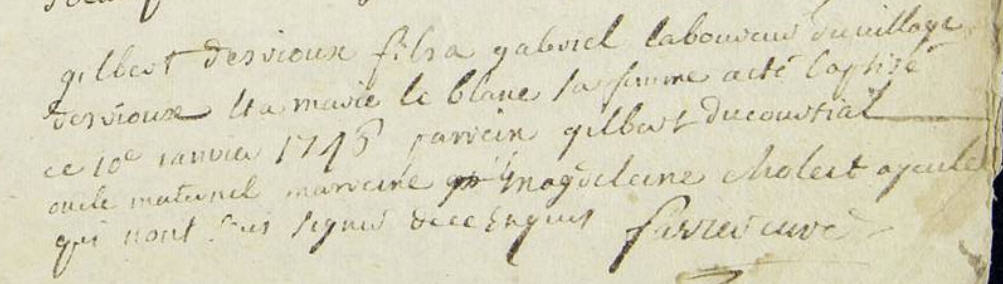 gilbert desrioux fils a gabriel laboureur du village
desrioux et a marie le blanc sa femme a eté baptisé
ce 10e janvier 1745 parrein gilbert ducourtial
oncle maternel marreine magdeleine cholet ayeule
qui nont sig signer de ce enquis farrier curé